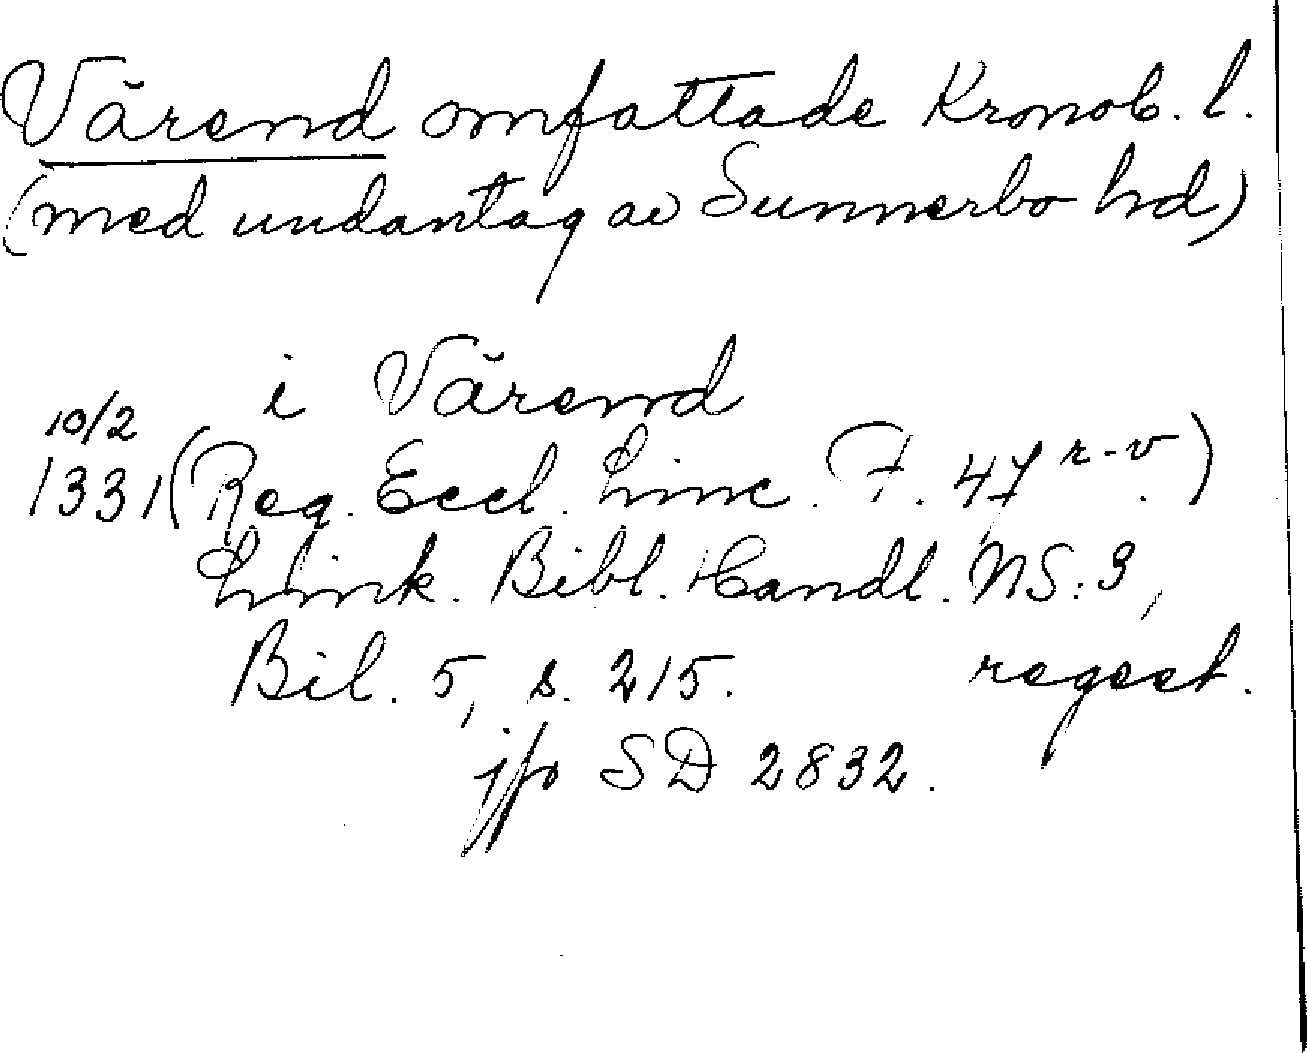 Värend omfattade Kronob. l.
(med undantag av Sunnerbo hd)
i Värend
10/2
1331 (Reg. Eccl. Linc. F. 47 r-v.)
Link. Bibl. Handl. NS: 3,
Bil. 5, s. 215. regest.
jfr SD 2832.